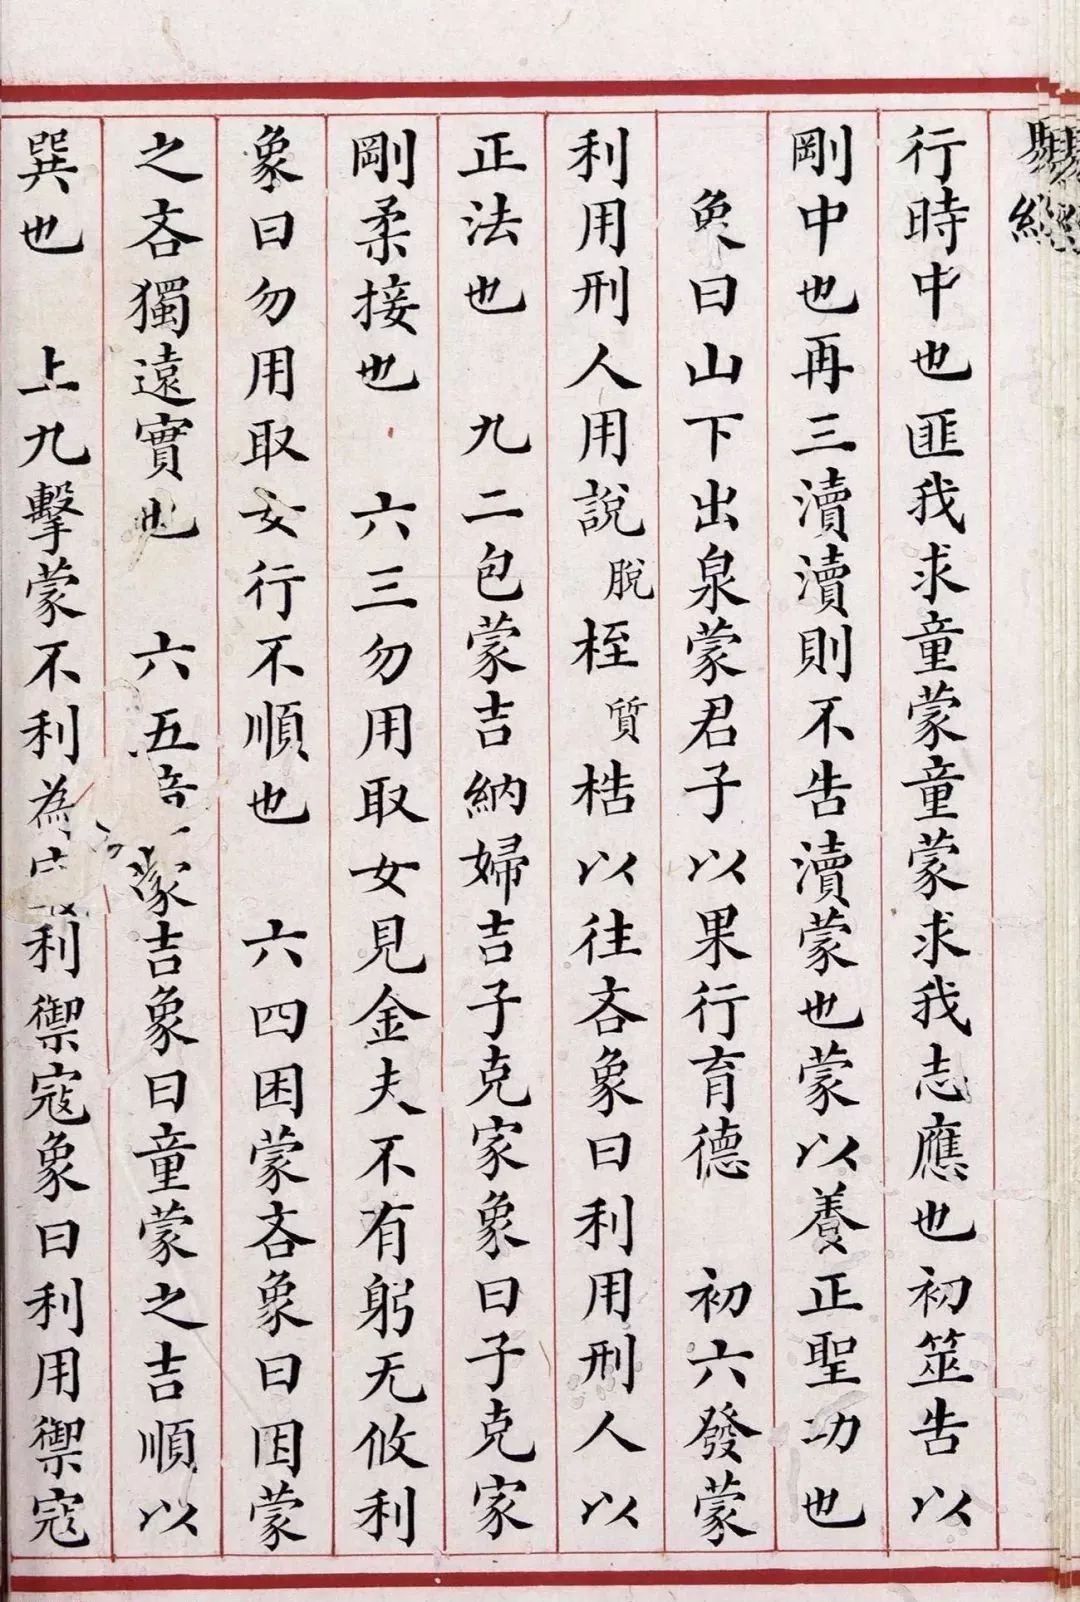 行時中也匪我求童蒙童蒙求我志應也初筮告以
剛中也再三瀆瀆則不告瀆蒙也蒙以養正聖功也
象曰山下出泉蒙君子以果行育德 初六發蒙
利用刑人用說脫桎質梏以往吝象曰利用刑人以
正法也 九二包蒙吉納婦吉子克家象曰子克家
剛柔接也 六三勿用取女見金夫不有躬无攸利
象曰勿用取女行不順也 六四困蒙吝象曰困蒙
之吝獨遠實也 六五蒙吉象曰童蒙之吉順以
巽也 上九擊蒙不利為利禦寇象曰利用禦寇